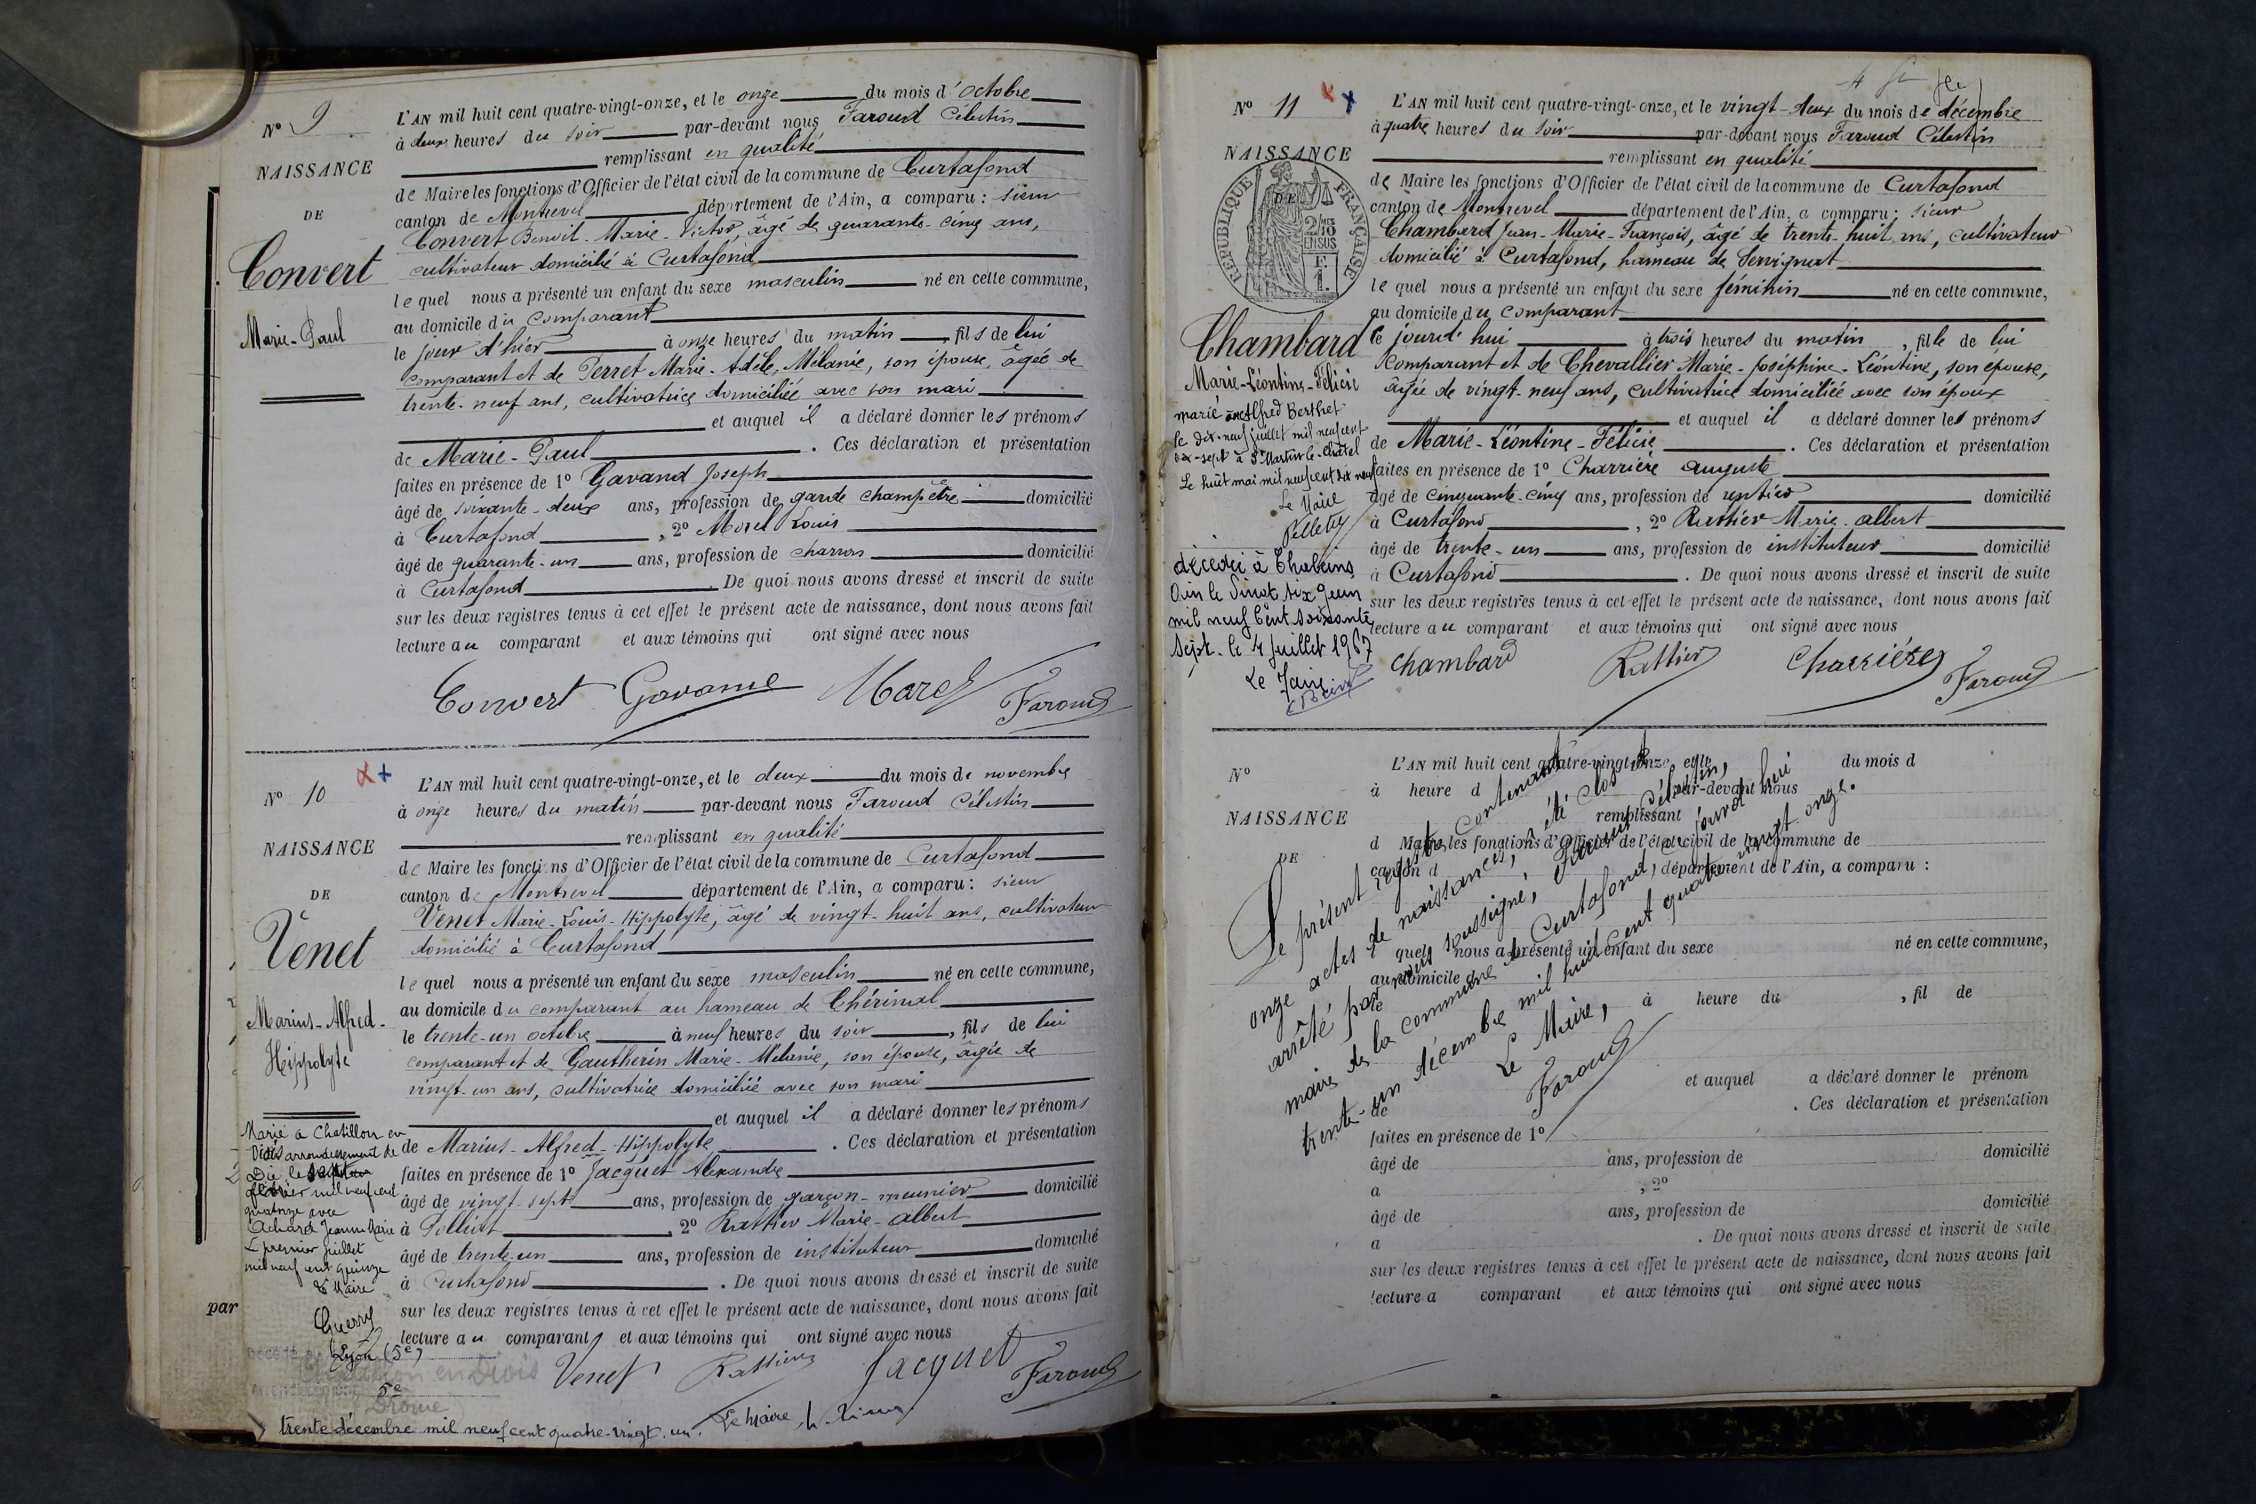 N° 9
NAISSANCE
DE
Convert
Marie-Paul
L'AN mil huit cent quatre-vingt-onze, et le onze du mois d'octobre
à deux heures du soir par-devant nous Faroud Célestin
remplissant en qualité
de Maire les fonctions d'Officier de l'état civil de la commune de Curtafond
canton de Montrevel département de l'Ain, a comparu : sieur
Convert Benoit-Marie-Victor, âgé de quarante-cinq ans,
cultivateur domicilié à Curtafond
lequel nous a présenté un enfant du sexe masculin né en cette commune,
au domicile du comparant
le jour d'hier à onze heures du matin, fils de lui
comparant et de Perret Marie-Adèle-Mélanie, son épouse, âgée de
trente-neuf ans, cultivatrice domiciliée avec son mari
et auquel il a déclaré donner les prénoms
de Marie-Paul. Ces déclaration et présentation
faites en présence de 1° Gavand Joseph
âgé de soixante-deux ans, profession de garde champêtre domicilié
à Curtafond, 2° Morel Louis
âgé de quarante-un ans, profession de charron domicilié
à Curtafond. De quoi nous avons dressé et inscrit de suite
sur les deux registres tenus à cet effet le présent acte de naissance, dont nous avons fait
lecture au comparant et aux témoins qui ont signé avec nous
Convert Gavand Morel Faroud
N° 10
NAISSANCE
DE
Venet
Marius-Alfred-
Hippolyte
Marié à Chatillon en
Diois arrondissement de
Die le
février mil neuf cent
quatorze avec
Achard Jeanne Marie
Le premier juillet
mil neuf cent quinze
Le Maire
Guerry
L'AN mil huit cent quatre-vingt-onze, et le deux du mois de novembre
à onze heures du matin par-devant nous Faroud Célestin
remplissant en qualité
de Maire les fonctions d'Officier de l'état civil de la commune de Curtafond
canton de Montrevel département de l'Ain, a comparu : sieur
Venet Marie-Louis-Hippolyte, âgé de vingt-huit ans, cultivateur
domicilié à Curtafond
lequel nous a présenté un enfant du sexe masculin né en cette commune,
au domicile du comparant au hameau de Chérinal
le trente-un octobre à neuf heures du soir, fils de lui
comparant et de Gautherin Marie-Mélanie, son épouse, âgée de
vingt-un ans, cultivatrice domiciliée avec son mari
et auquel il a déclaré donner les prénoms
de Marius-Alfred-Hippolyte. Ces déclaration et présentation
faites en présence de 1° Jacquet Alexandre
âgé de vingt-sept ans, profession de garçon-meunier domicilié
à Polliat, 2° Rattier Marie-Albert
âgé de trente-un ans, profession de instituteur domicilié
à Curtafond. De quoi nous avons dressé et inscrit de suite
sur les deux registres tenus à cet effet le présent acte de naissance, dont nous avons fait
lecture au comparant et aux témoins qui ont signé avec nous
par
Décédé à Lyon (5e)
Chatillon en Diois
5e
Drôme
Venet Rattier Jacquet Faroud
trente décembre mil neuf cent quatre-vingt-un. Le Maire,
N° 11
NAISSANCE
RÉPUBLIQUE FRANÇAISE
DE
2/10
EN SUS
F.
1.
Chambard
Marie-Léontine-Félicie
marié avec Alfred Berthet
le dix-neuf juillet mil neuf cent
dix-sept à St Martin-le-Châtel
Le huit mai mil neuf cent dix neuf
Le Maire
décédée à Thoboins
Ain le vingt six juin
mil neuf cent soixante
sept. le 4 juillet 1967
Le Maire
L'AN mil huit cent quatre-vingt-onze, et le vingt-deux du mois de décembre
à quatre heures du soir par-devant nous Faroud Célestin
remplissant en qualité
de Maire les fonctions d'Officier de l'état civil de la commune de Curtafond
canton de Montrevel département de l'Ain, a comparu : sieur
Chambard Jean-Marie-François, âgé de trente-huit ans, cultivateur
domicilié à Curtafond, hameau de Servignat
lequel nous a présenté un enfant du sexe féminin né en cette commune,
au domicile du comparant
le jourd'hui à trois heures du matin, fille de lui
comparant et de Chevallier Marie-Joséphine-Léontine, son épouse,
âgée de vingt-neuf ans, cultivatrice domiciliée avec son époux
et auquel il a déclaré donner les prénoms
de Marie-Léontine-Félicie. Ces déclaration et présentation
faites en présence de 1° Charrière Auguste
âgé de cinquante-cinq ans, profession de rentier domicilié
à Curtafond, 2° Rattier Marie-Albert
âgé de trente-un ans, profession de instituteur domicilié
à Curtafond. De quoi nous avons dressé et inscrit de suite
sur les deux registres tenus à cet effet le présent acte de naissance, dont nous avons fait
lecture au comparant et aux témoins qui ont signé avec nous
Chambard Rattier Charrière Faroud
N°
NAISSANCE
DE
L'AN mil huit cent quatre-vingt-onze, et le du mois d
à heure d par-devant nous
remplissant
d Maire les fonctions d'Officier de l'état civil de la commune de
canton d département de l'Ain, a comparu :
quel nous a présenté un enfant du sexe né en cette commune,
au domicile d
le à heure du , fil de
et auquel a déclaré donner le prénom
de . Ces déclaration et présentation
faites en présence de 1°
âgé de ans, profession de domicilié
a , 2°
âgé de ans, profession de domicilié
a . De quoi nous avons dressé et inscrit de suite
sur les deux registres tenus à cet effet le présent acte de naissance, dont nous avons fait
lecture a comparant et aux témoins qui ont signé avec nous
Le présent registre contenant
onze actes de naissances, a été clos et
arrêté par nous soussigné, Faroud Célestin,
maire de la commune de Curtafond, aujourd'hui
trente-un décembre mil huit cent quatre vingt onze.
Le Maire,
Faroud